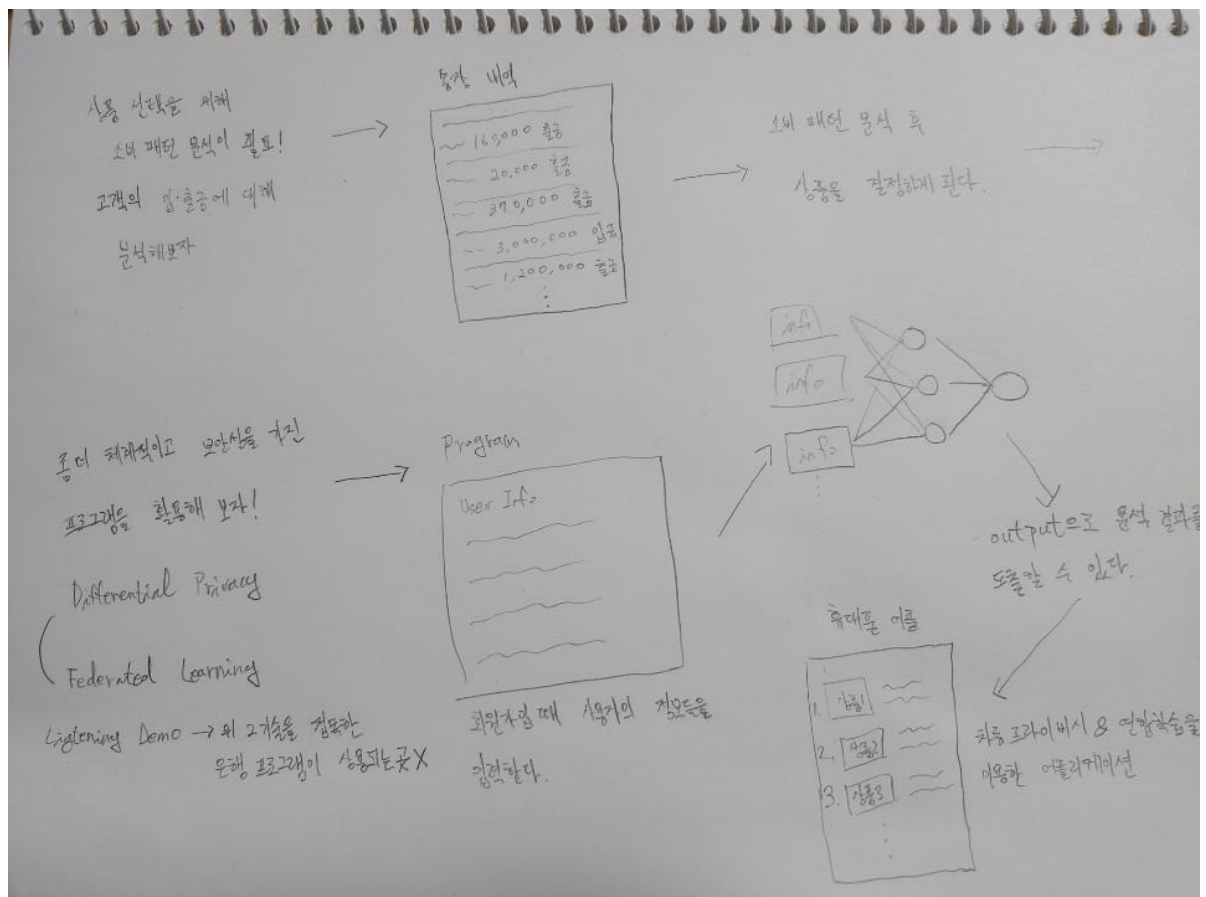 상품 선택을 위해
소비 패턴 분석이 필요!
고객의 입·출금에 대해
분석해보자
통장 내역
160,000 출금
20,000 출금
370,000 출금
3,000,000 입금
1,200,000 출금
소비 패턴 분석 후
상품을 결정하게 된다.
좀 더 체계적이고 보안성을 가진
프로그램을 활용해 보자!
Differential Privacy
Federated Learning
Lightening Demo → 위 2기술을 접목한
은행 프로그램이 상용되는 곳 X
Program
User Info
회원가입 때 사용자의 정보들을
입력한다.
info
info
info
output으로 분석 결과를
도출할 수 있다.
휴대폰 어플
1. 상품1
2. 상품2
3. 상품3
차등 프라이버시 & 연합학습을
이용한 어플리케이션